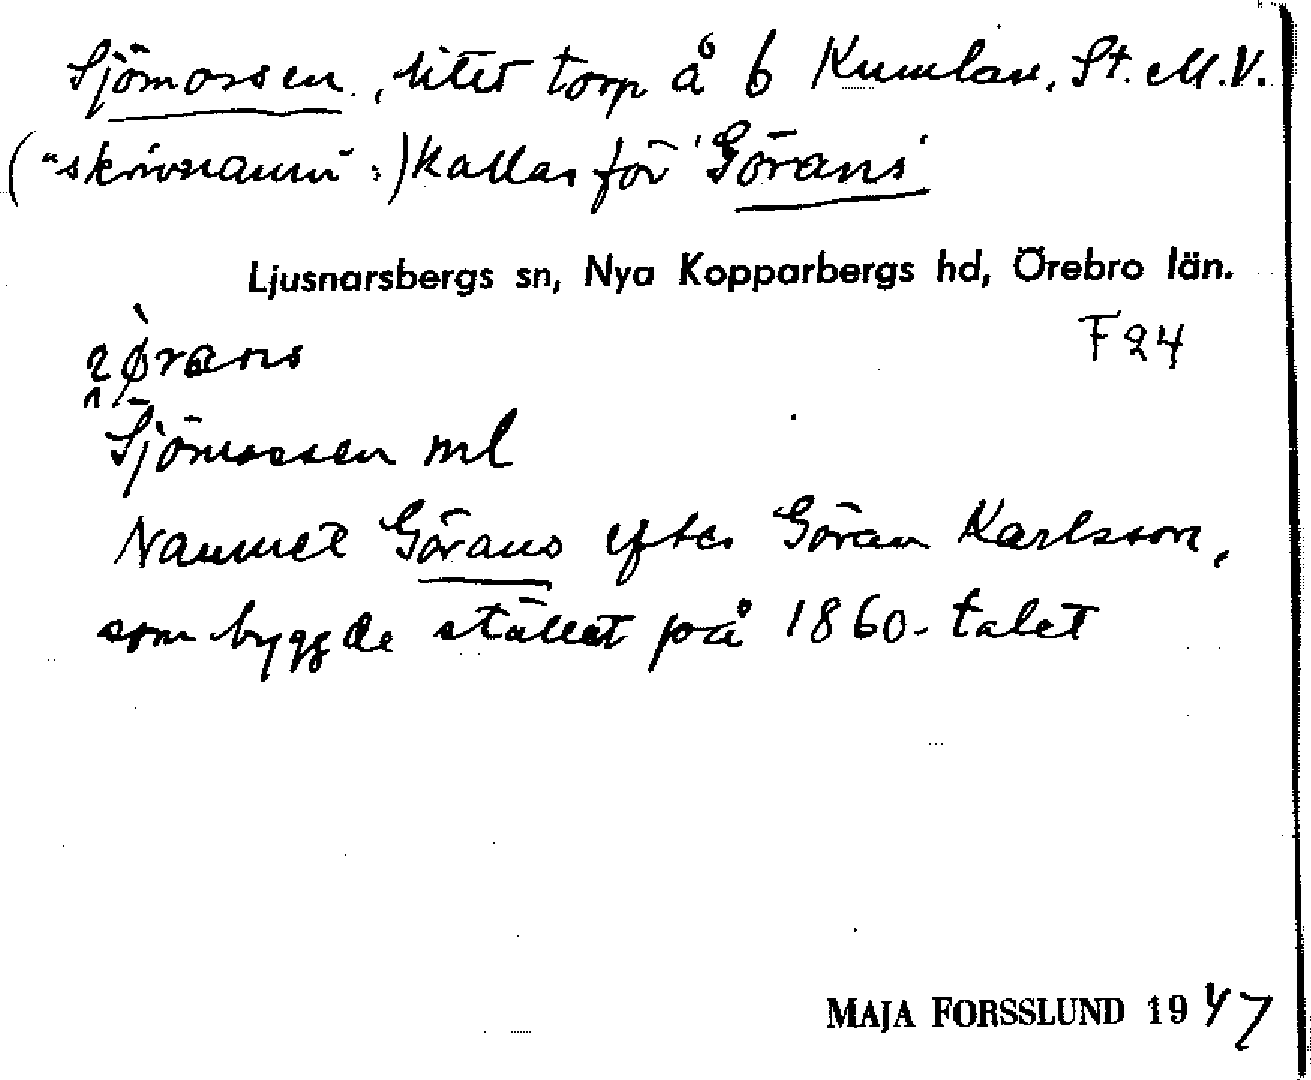 Sjömossen, litet torp å 6 Kumlan, St. M.V.
("skrivnamn":) kallas för 'Görans'
Ljusnarsbergs sn, Nya Kopparbergs hd, Örebro län.
F 24
Sjömossen ml
Namnet Görans efter Göran Karlsson,
som byggde stället på 1860-talet
MAJA FORSSLUND 1947